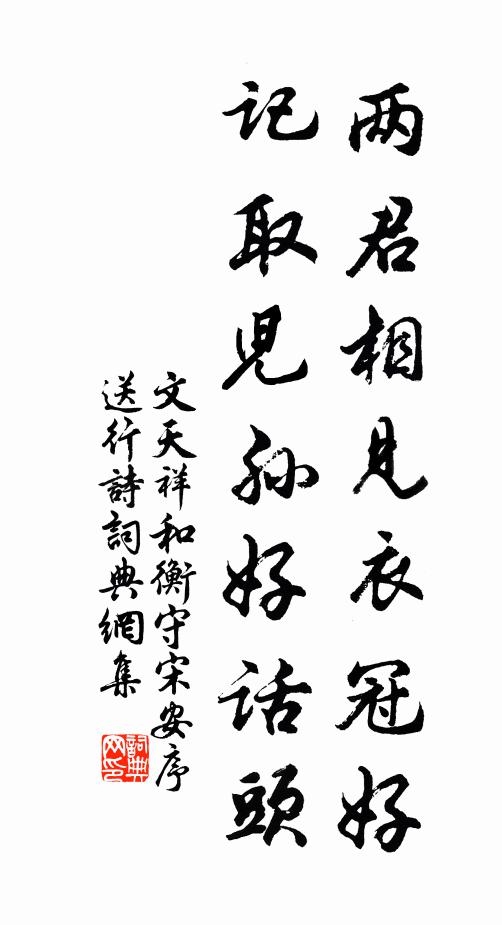 两君相見衣冠好
記取児孙好话頭
文天祥和衡守宋安序
送行詩詞典網集
詞典
网印